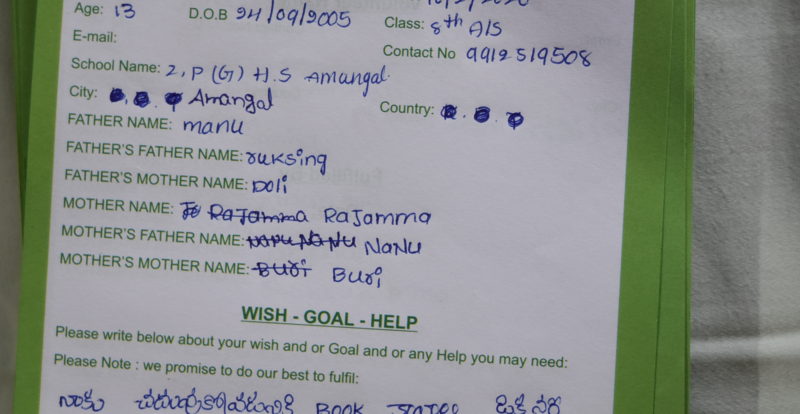 Age: 13 D.O.B 24/09/2005 Class: 8th A/S
E-mail: Contact No 9912519508
School Name: Z.P (G) H.S Amangal
City: Amangal Country:
FATHER NAME: manu
FATHER'S FATHER NAME: ruksing
FATHER'S MOTHER NAME: Doli
MOTHER NAME: Rajamma Rajamma
MOTHER'S FATHER NAME: NaNu
MOTHER'S MOTHER NAME: Buri Buri
WISH - GOAL - HELP
Please write below about your wish and or Goal and or any Help you may need:
Please Note : we promise to do our best to fulfil:
నాకు BOOK